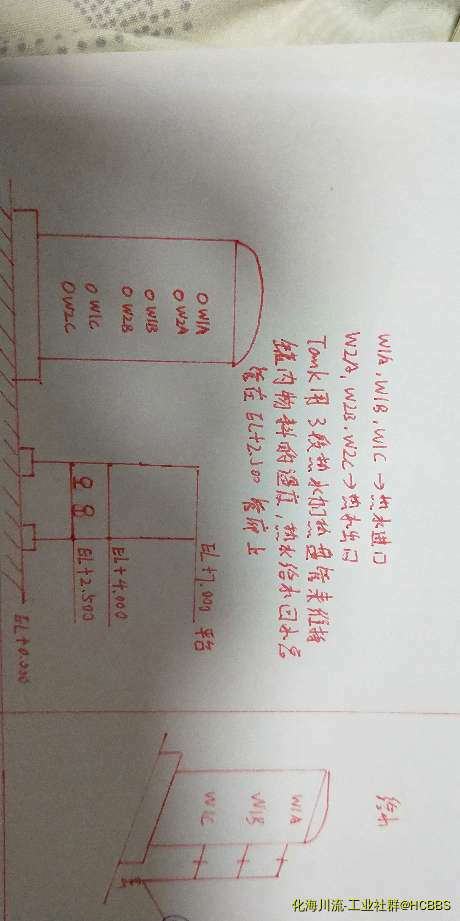 W1A、W1B、W1C → 热水进口
W2A、W2B、W2C → 热水出口
Tank用3段热水伴热盘管来维持
罐内物料的温度，热水给水回水总
管在EL+2.500管廊上
W1A
W2A
W1B
W2B
W1C
W2C
EL+7.000 平台
EL+4.000
EL+2.500
EL+0.000
给水
W1A
W1B
W1C
化海川流-工业社群@HCBBS